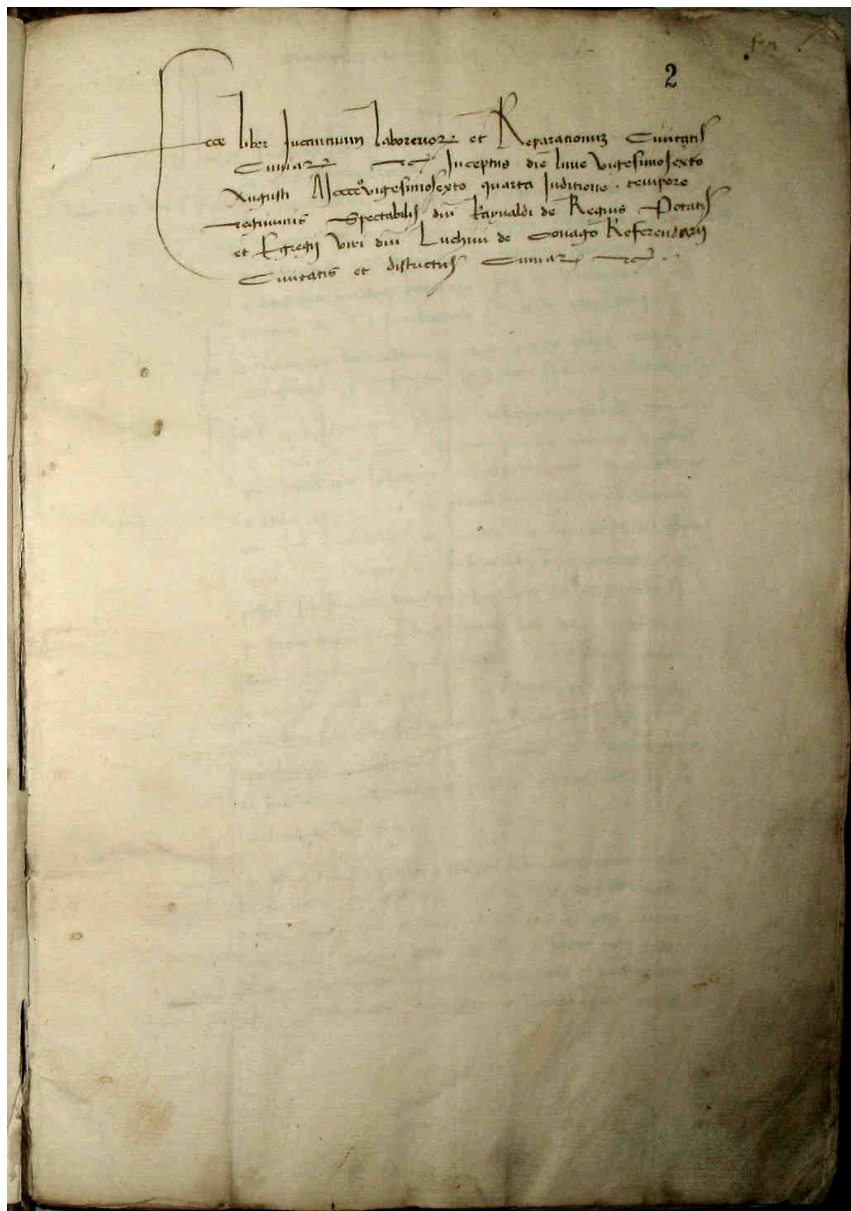 2
Ecce liber Incantuum laborerior et Reparationum Civitatis
Cumar Inceptus die lune vigesimosexto
Augusti Mccccº vigesimosexto quarta Inditione tempore
regiminis Spectabilis dni Raynaldi de Regius Potatis
et Egregii viri dni Luchini de Referendarii
Civitatis et districtus Cumar